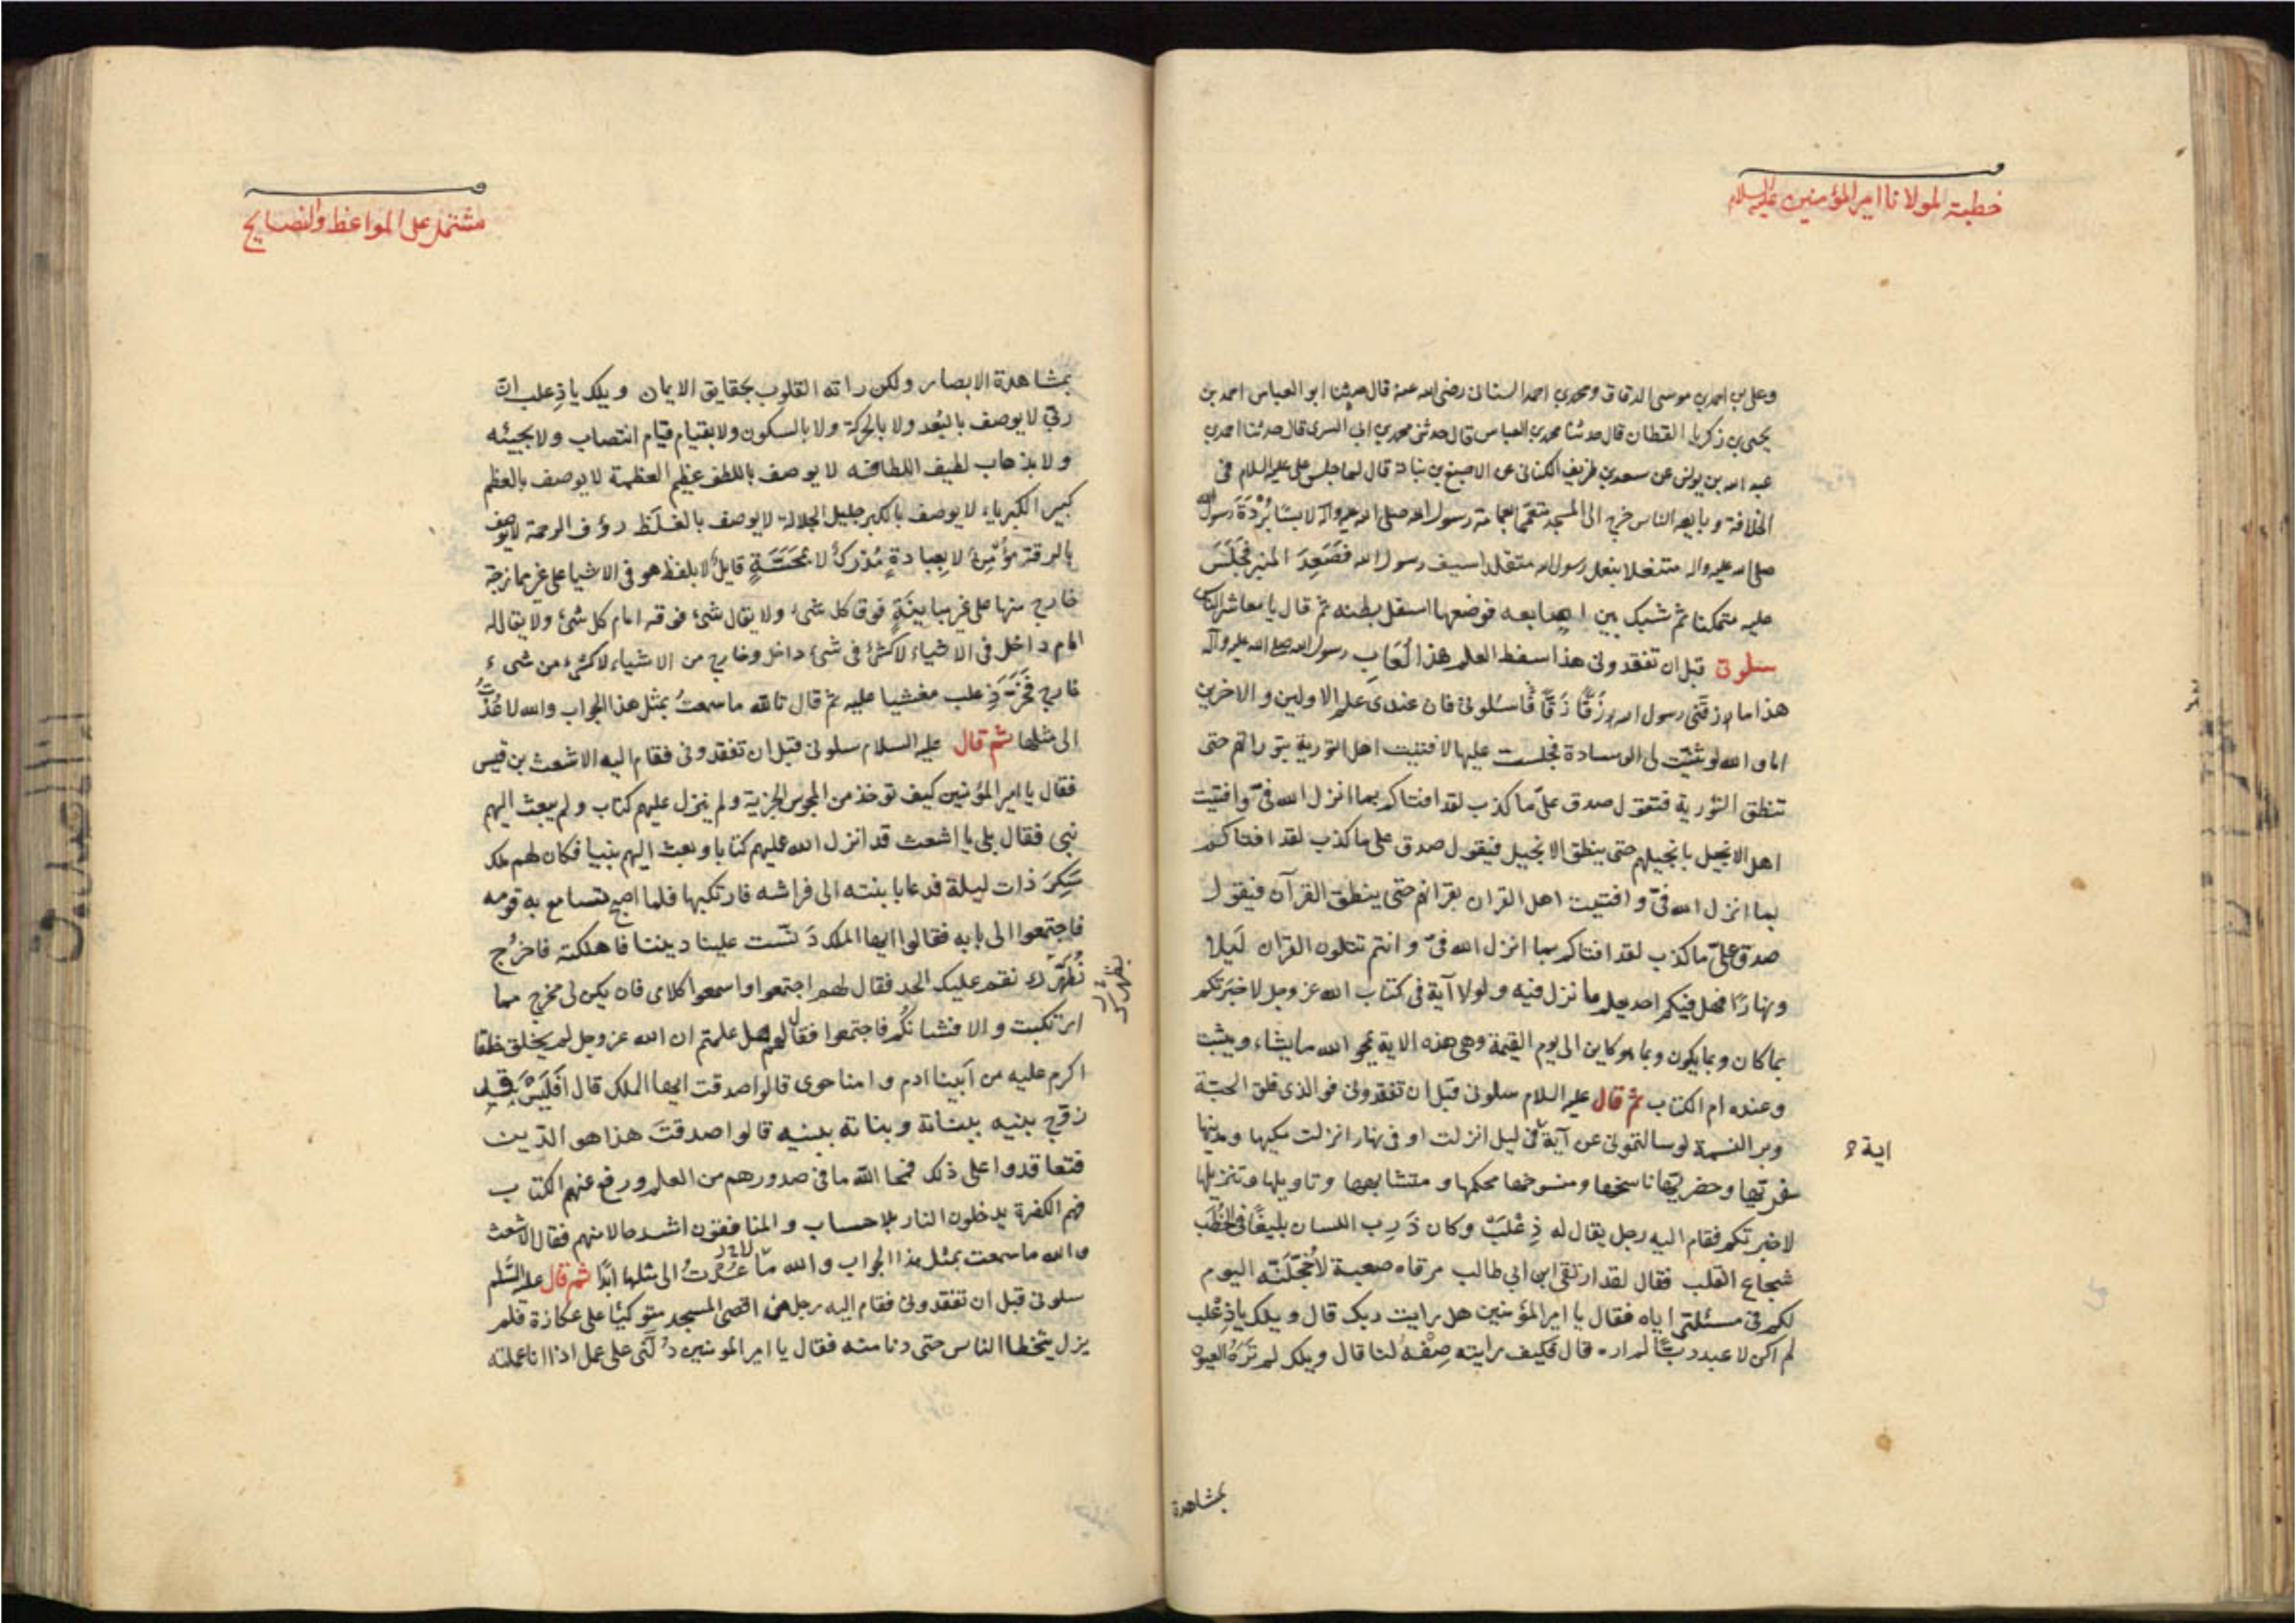 خطبة لمولانا امير المؤمنين عليه السلام
وعلي بن احمد بن موسى الدقاق ومحمد بن احمد السناني رضى الله عنه قال حدثنا ابو العباس احمد بن
يحيى بن زكريا القطان قال حدثنا محمد بن العباس قال حدثنى محمد بن ابى السرى قال حدثنا احمد بن
عبد الله بن يونس عن سعد بن طريف الكنانى عن الاصبغ بن نباتة قال لما جلس على عليه السلام فى
الخلافة وبايعه الناس خرج الى المسجد متعمما بعمامة رسول الله صلى الله عليه وآله لابسًا بُرْدَةَ رسول الله
صلى الله عليه واله متنعلا بنعل رسول الله متقلدا سيف رسول الله فصَعِدَ المنبر فَجَلَسَ
عليه متمكنا ثم شبك بين اصابعه فوضعها اسفل بطنه ثم قال يا معاشر الناس
سلونى قبل ان تفقدونى هذا سفط العلم هذا لُعَاب رسول الله صلى الله عليه وآله
هذا ما زقنى رسول الله زَقًّا زَقًّا فاسئلونى فان عندى علم الاولين والاخرين
اما والله لو ثنيت لى الوسادة فجلست عليها لافتيت اهل التورية بتوراتهم حتى
تنطق التورية فتقول صدق علىّ ما كذب لقد افتاكم بما انزل الله فىّ وافتيت
اهل الانجيل بانجيلهم حتى ينطق الانجيل فيقول صدق على ما كذب لقد افتاكم
بما انزل الله فىّ وافتيت اهل القران بقرانهم حتى ينطق القرآن فيقول
صدق علىّ ما كذب لقد افتاكم بما انزل الله فىّ وانتم تتلون القران لَيلا
ونهارًا فهل فيكم احد يعلم ما نزل فيه ولولا آية فى كتاب الله عز وجل لاخبرتكم
بما كان وبما يكون وبما هو كاين الى يوم القيمة وهى هذه الاية يمحو الله ما يشاء ويثبت
وعنده ام الكتاب ثم قال عليه السلام سلونى قبل ان تفقدونى فوالذى فلق الحبة
وبر النسمة لو سالتمونى عن آية فى ليل انزلت او فى نهار انزلت مكيها ومدنيها
اية
سفريها وحضريها ناسخها ومنسوخها محكمها ومتشابهها وتاويلها وتنزيلها
لاخبرتكم فقام اليه رجل يقال له ذِعْلَبْ وكان ذَرِب اللسان بليغًا فى الخُطَب
شجاع القلب فقال لقد ارتقى ابن ابى طالب مرقاه صعبة لاُخجِّلَنّه اليوم
لكم فى مسئلتى اياه فقال يا امير المؤمنين هل رايت ربك قال ويلك يا ذِعْلب
لم اكن لاعبد ربًّا لم اره قال فكيف رايته صِفْهُ لنا قال ويلك لم تَرَهُ العيون
بمشاهدة
مشتمل على المواعظ والنصايح
بمشاهدة الابصار ولكن راته القلوب بحقايق الايمان ويلك يا ذِعلب انّ
ربّى لا يوصف بالبُعد ولا بالحركة ولا بالسكون ولا بقيام قيام انتصاب ولا بجيئه
ولا بذهاب لطيف اللطافه لا يوصف باللطف عظيم العظمة لا يوصف بالعظم
كبير الكبرياء لا يوصف بالكبر جليل الجلالة لا يوصف بالغلَظ رؤف الرحمة لا يوصف
بالرقة مؤمِنٌ لا بعبادةٍ مُدْرِكٌ لا بمحَسَّةٍ قايلٌ لا بلفظ هو فى الاشيا على غير ممازجة
خارج منها على غير مباينَةٍ فوق كل شئ ولا يقال شئ فوقه امام كل شئ ولا يقال له
امام داخل فى الاشياء لا كشئ فى شئ داخل وخارج من الاشياء لا كشئ من شىء
خارج فخَرَّ ذِعلب مغشيا عليه ثم قال تالله ما سمعتُ بمثل هذا الجواب والله لا عُدْتُ
الى مثلها ثم قال عليه السلام سلونى قبل ان تفقدونى فقام اليه الاشعث بن قيس
فقال يا امير المؤمنين كيف توخذ من المجوس الجزية ولم ينزل عليهم كتاب ولم يبعث اليهم
نبى فقال بلى يا اشعث قد انزل الله عليهم كتابا وبعث اليهم نبيا فكان لهم ملك
سَكِرَ ذات ليلة فدعا بابنته الى فراشه فارتكبها فلما اصبح تسامع به قومه
فاجتمعوا الى بابه فقالوا ايها الملك دَنَّست علينا ديننا فاهلكته فاخرُج
نُطَهِّرك نقم عليك الحد فقال لهم اجتمعوا واسمعوا كلامى فان يكن لى مخرج مما
نطهرك
ارتكبت والا فشانكُم فاجتمعوا فقال لهم هل علمتم ان الله عز وجل لم يخلق خلقا
اكرم عليه من اَبينا ادم وامنا حوى قالوا صدقت ايها الملك قال اَفلَيْسَ قد
زوّج بنيه ببناته وبناته ببنيه قالوا صدقتَ هذا هو الدّين
فتعاقدوا على ذلك فمحا اللّه ما فى صدورهم من العلم ورفع عنهم الكتاب
فهم الكفرة يدخلون النار بلا حساب والمنافقون اشد حالا منهم فقال الاشعث
والله ما سمعت بمثل هذا الجواب والله ما عُدْتُ الى مثلها ابدًا ثم قال عليه السّلم
سلونى قبل ان تفقدونى فقام اليه رجل من اقصى المسجد متوكيًا على عكازة فلم
يزل يتخطا الناس حتى دنا منه فقال يا امير المؤمنين دُلَّنى على عمل اذا انا عملته